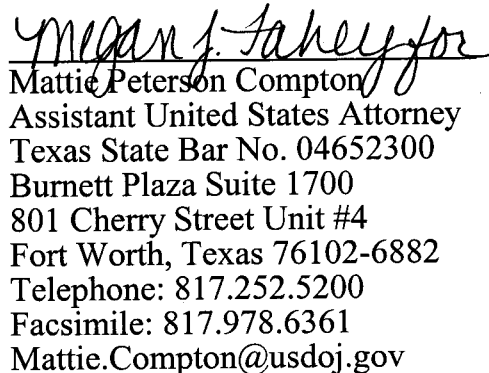 Megan J. Fahey for
Mattie Peterson Compton
Assistant United States Attorney
Texas State Bar No. 04652300
Burnett Plaza Suite 1700
801 Cherry Street Unit #4
Fort Worth, Texas 76102-6882
Telephone: 817.252.5200
Facsimile: 817.978.6361
Mattie.Compton@usdoj.gov